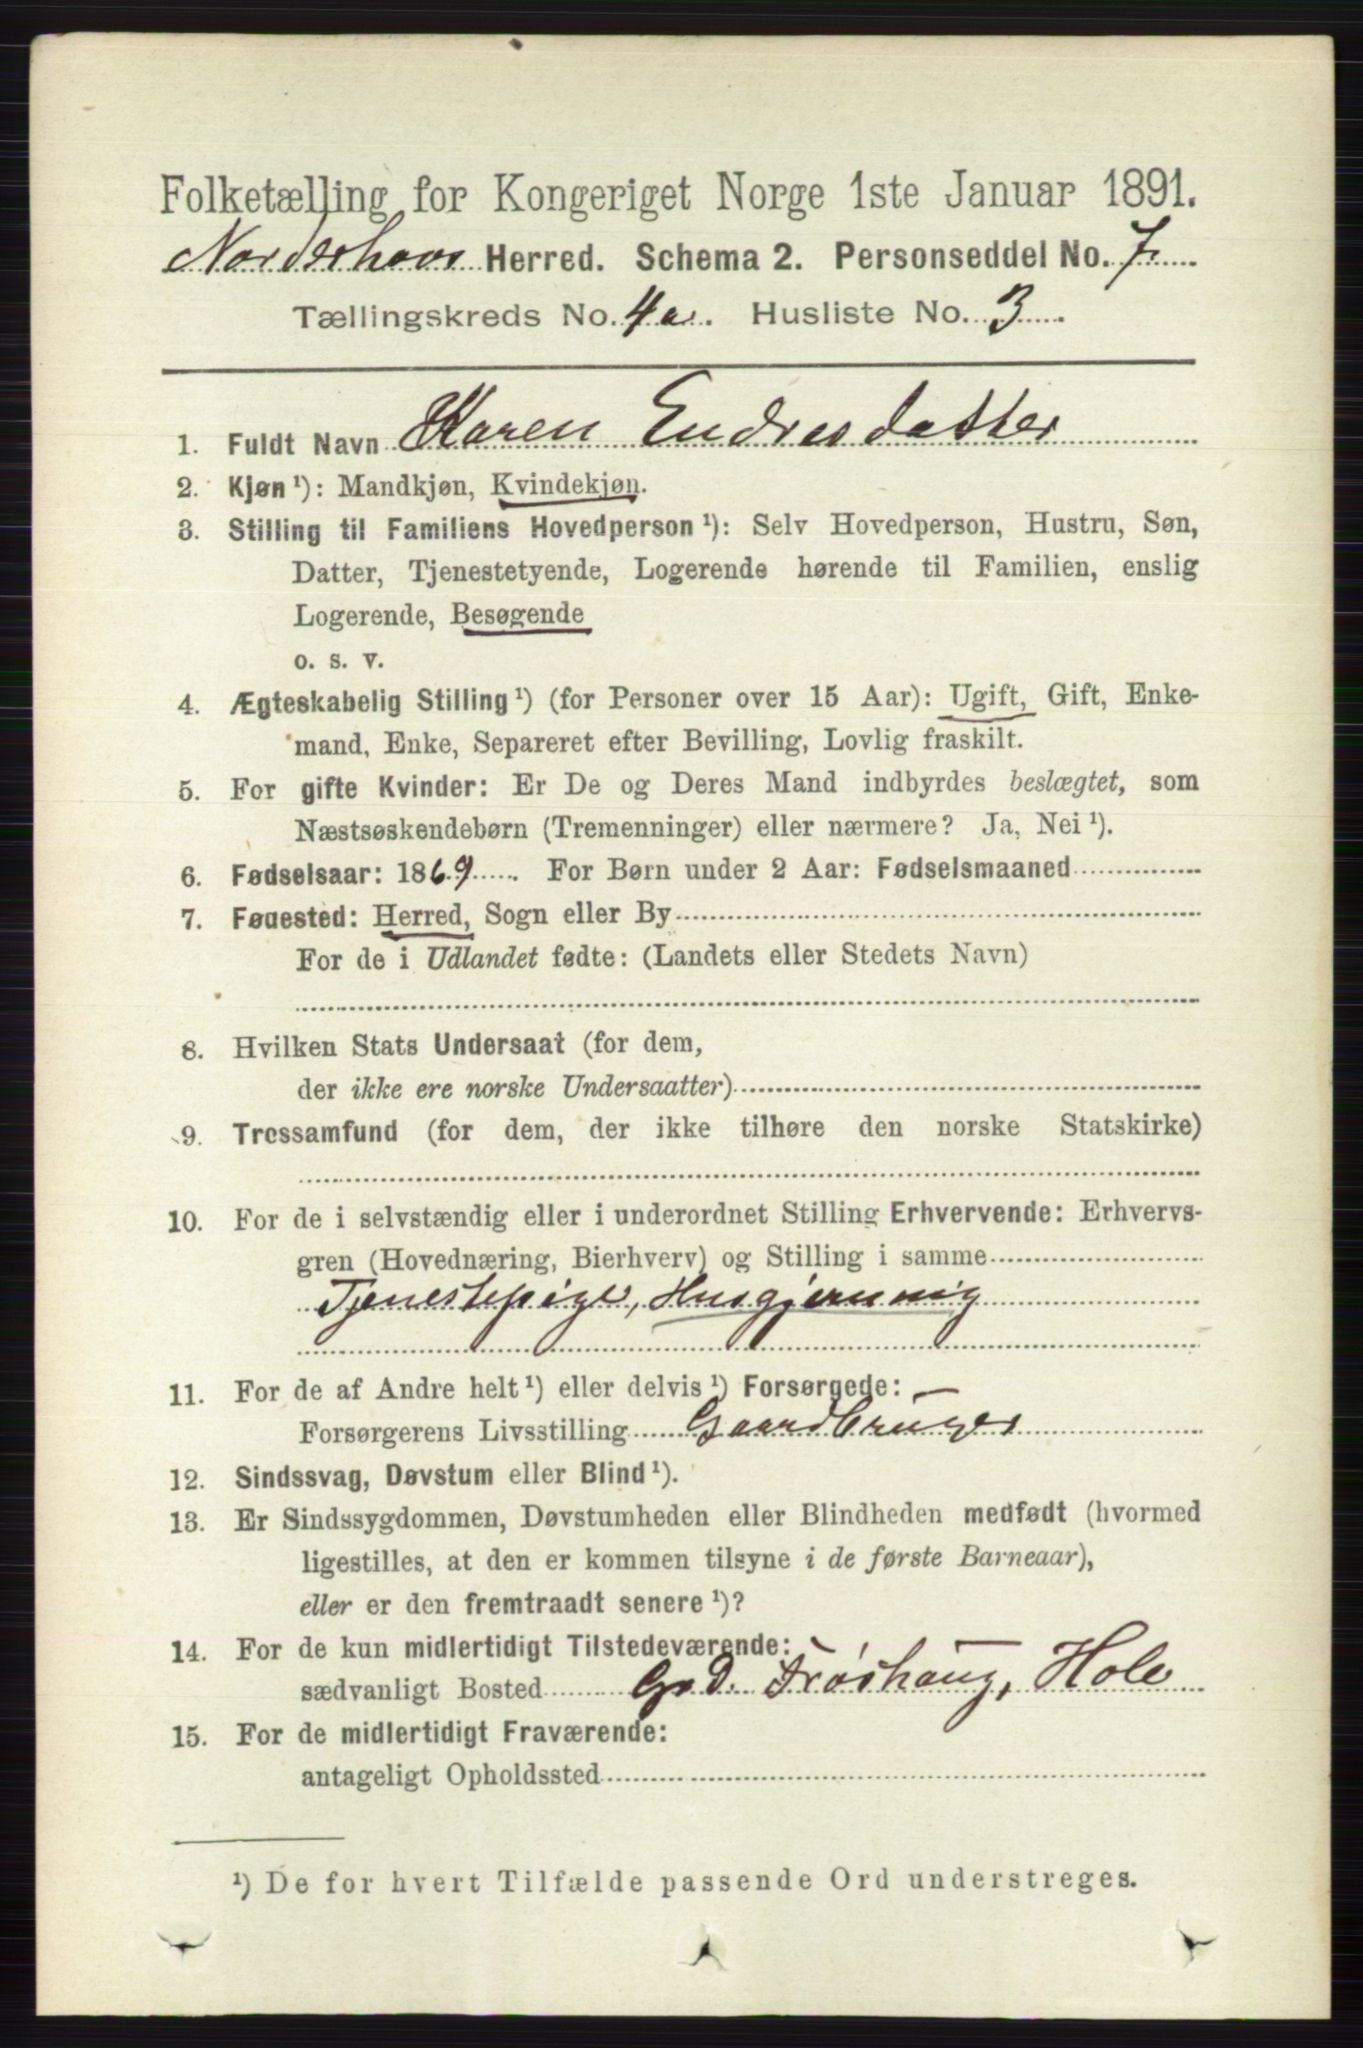 Folketælling for Kongeriget Norge 1ste Januar 1891.
Norderhovs Herred. Schema 2. Personseddel No. 7.
Tællingskreds No. 4a. Husliste No. 3
1. Fuldt Navn Karen Endresdatter
2. Kjøn ¹): Mandkjøn, Kvindekjøn.
3. Stilling til Familiens Hovedperson ¹): Selv Hovedperson, Hustru, Søn,
Datter, Tjenestetyende, Logerende hørende til Familien, enslig
Logerende, Besøgende
o. s. v.
4. Ægteskabelig Stilling ¹) (for Personer over 15 Aar): Ugift, Gift, Enke-
mand, Enke, Separeret efter Bevilling, Lovlig fraskilt.
5. For gifte Kvinder: Er De og Deres Mand indbyrdes beslægtet, som
Næstsøskendebørn (Tremenninger) eller nærmere? Ja, Nei ¹).
6. Fødselsaar: 1869. For Børn under 2 Aar: Fødselsmaaned
7. Føuested: Herred, Sogn eller By
For de i Udlandet fødte: (Landets eller Stedets Navn)
8. Hvilken Stats Undersaat (for dem,
der ikke ere norske Undersaatter)
9. Trossamfund (for dem, der ikke tilhøre den norske Statskirke)
10. For de i selvstændig eller i underordnet Stilling Erhvervende: Erhvervs-
gren (Hovednæring, Bierhverv) og Stilling i samme
Tjenestepige, Husgjerning
11. For de af Andre helt ¹) eller delvis ¹) Forsørgede:
Forsørgerens Livsstilling Gaardbruger
12. Sindssvag, Døvstum eller Blind ¹).
13. Er Sindssygdommen, Døvstumheden eller Blindheden medfødt (hvormed
ligestilles, at den er kommen tilsyne i de første Barneaar),
eller er den fremtraadt senere ¹)?
14. For de kun midlertidigt Tilstedeværende:
sædvanligt Bosted Grd. Frøshaug, Hole
15. For de midlertidigt Fraværende:
antageligt Opholdssted
¹) De for hvert Tilfælde passende Ord understreges.